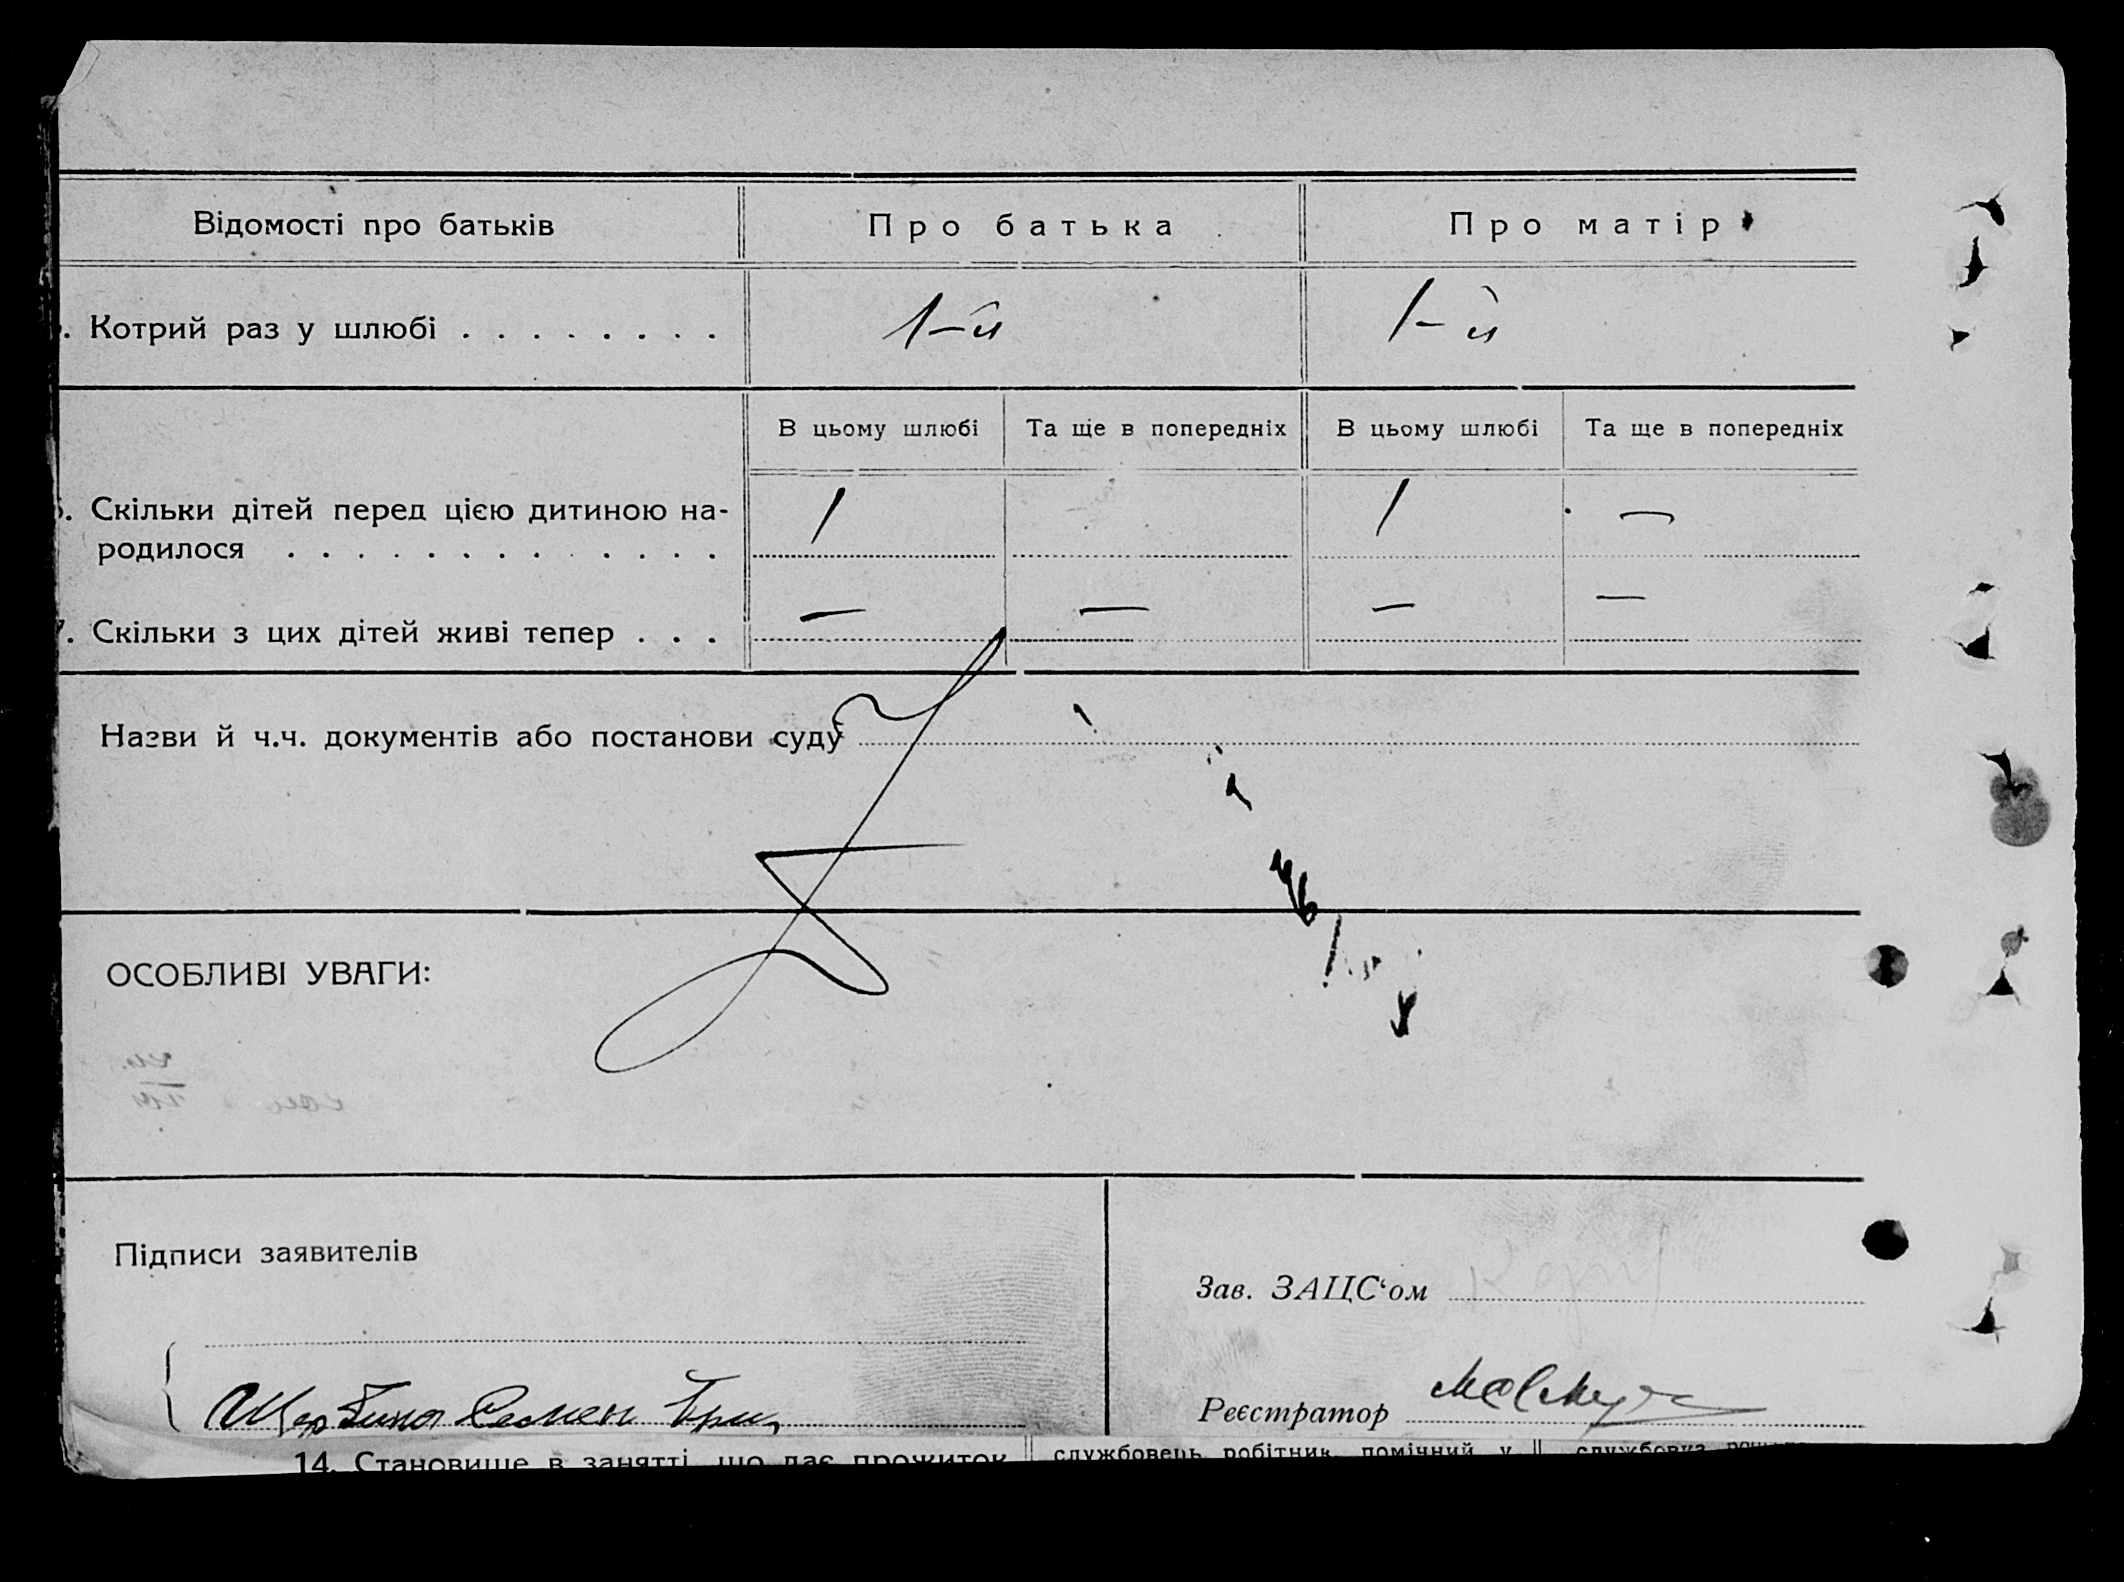 Відомості про батьків Про батька Про матір
. Котрий раз у шлюбі . . . . . . . . 1-й 1-й
В цьому шлюбі Та ще в попередніх В цьому шлюбі Та ще в попередніх
. Скільки дітей перед цією дитиною на-
родилося . . . . . . . . . . . . . 1 1 —
7. Скільки з цих дітей живі тепер . . . — — — —
Назви й ч.ч. документів або постанови суду
ОСОБЛИВІ УВАГИ:
Підписи заявителів
Зав. ЗАЦС‘ом
Щербина Семен Григ
Реєстратор
14. Становище в занятті, що дає прожиток службовець, робітник, помічний у службовка